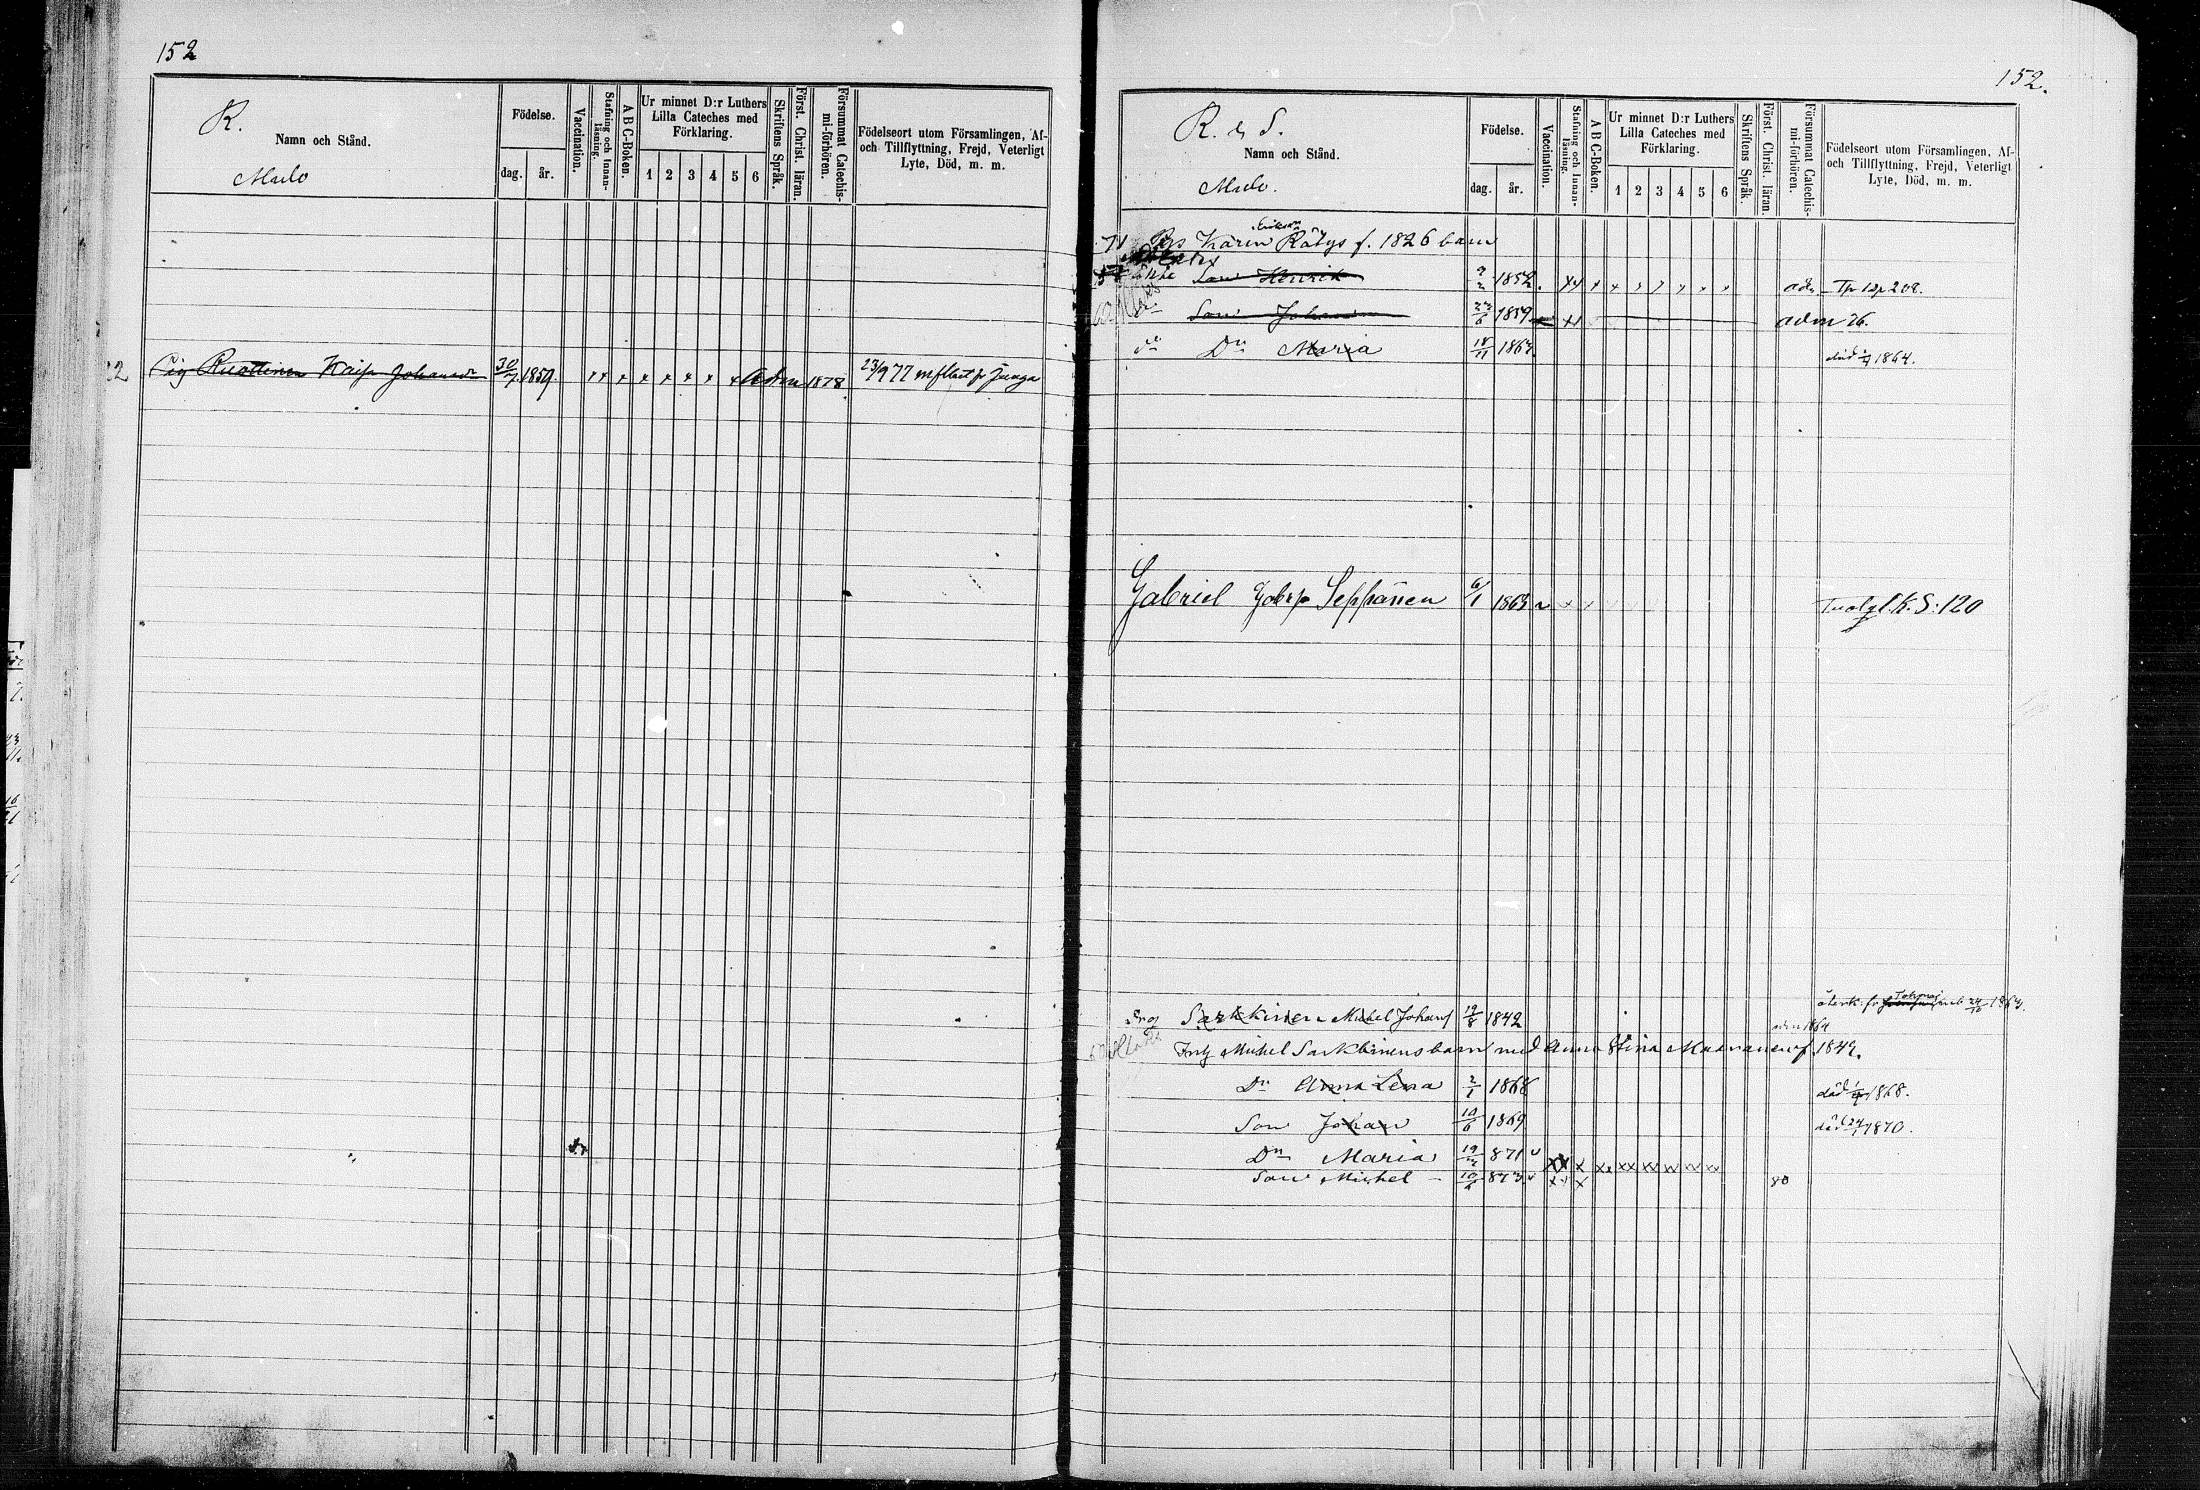 152
R.
Namn och Stånd.
Malo
Födelse.
dag. år.
Vaccination.
Stafning och Innanläsning.
A B C-Boken.
Ur minnet D:r Luthers
Lilla Cateches med
Förklaring.
1 2 3 4 5 6
Skriftens Språk.
Först. Christ. läran.
Försummat Catechismi-förhören.
Födelseort utom Församlingen, Af-
och Tillflyttning, Frejd, Veterligt
Lyte, Död, m. m.
Ruottinen Kaisa Johansdr 30/7 1859. x x x x x x x x x adm 1878 23/9 77
152.
R. & S.
Namn och Stånd.
Malo.
Födelse.
dag. år.
Vaccination.
Stafning och Innanläsning.
A B C-Boken.
Ur minnet D:r Luthers
Lilla Cateches med
Förklaring.
1 2 3 4 5 6
Skriftens Språk.
Först. Christ. läran.
Försummat Catechismi-förhören.
Födelseort utom Församlingen, Af-
och Tillflyttning, Frejd, Veterligt
Lyte, Död, m. m.
Karin Rätys f. 1826 barn
Son Henrik 1852. 208.
Son Johan 1859 adm 76.
Dr Maria 18/11 1863. död 1864.
Gabriel Gabrs Seppänen 6/1 1863 K. S: 120
Sarkkinen Michel Johans 19/8 1842 1863.
adm 1864
Michel Sarkkinens barn med Anna Stina f. 1842.
Dr Anna Lena 2/1 1868 död 1868.
Son Johan 10/6 1869 död 24/1 1870.
Dr Maria 19 871 xx x xx xx xx xx xx xx
Son Michel 10 873 xx x 80